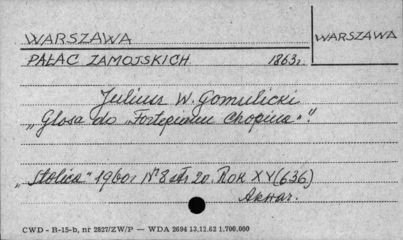 WARSZAWA
WARSZAWA
PAŁAC ZAMOJSKICH 1863r.
Juliusz W. Gomulicki
„Glosa do „Fortepianu Chopina"."
„Stolica" 1960r N° 8 str 20. Rok XV(636)
CWD - R-15-b, nr 2827/ZW/P — WDA 2694 13.12.62 1.700.000